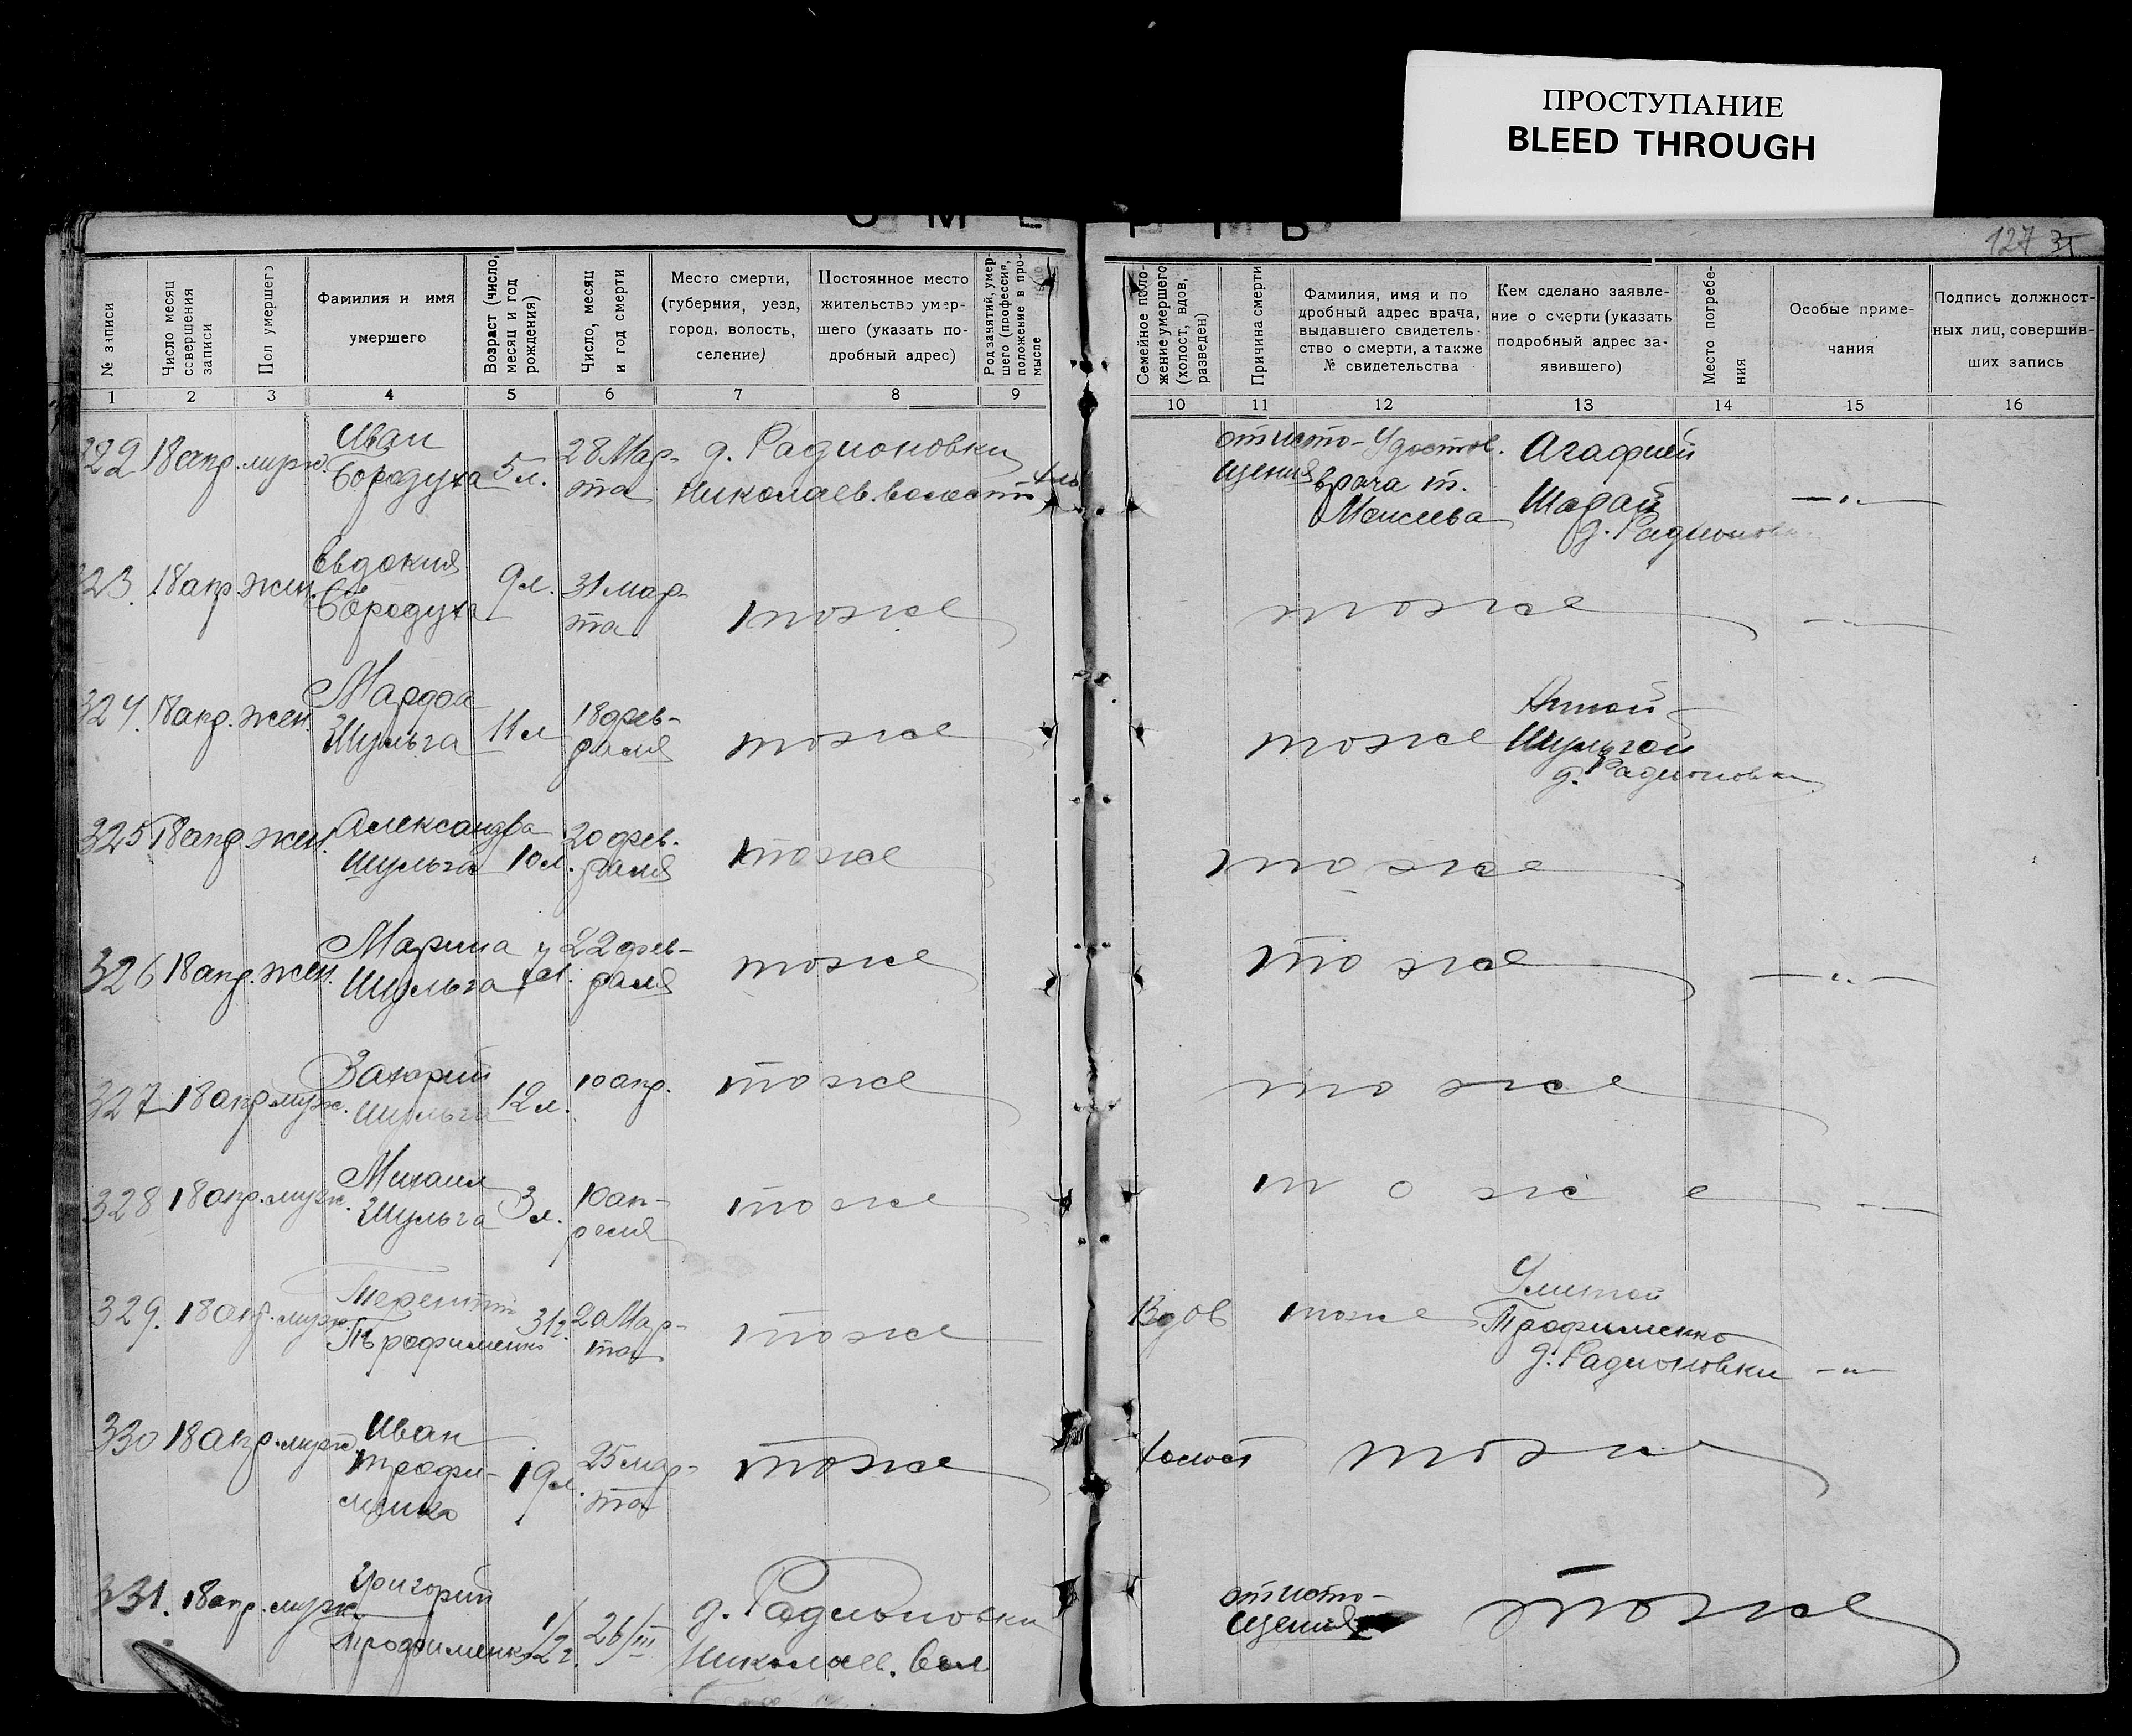 ПРОСТУПАНИЕ
BLEED THROUGH
127 35
№ записи
Число месяц совершения записи
Пол умершего
Фамилия и имя умершего
Возраст (число, месяц и год рождения)
Число, месяц и год смерти
Место смерти, (губерния, уезд, город, волость, селение)
Постоянное место жительство умершего (указать подробный адрес)
Род занятий, умершего (профессия, положение в промысле
Семейное положение умершего (холост, вдов, разведен)
Причина смерти
Фамилия, имя и подробный адрес врача, выдавшего свидетельство о смерти, а также № свидетельства
Кем сделано заявление о смерти (указать подробный адрес заявившего)
Место погребения
Особые примечания
Подпись должностных лиц, совершивших запись
1 2 3 4 5 6 7 8 9 10 11 12 13 14 15 16
322 18 апр. мужс. Иван Бородуха 5 л. 28 Марта д. Радионовки Николаев. волости от истощения Удостов. врача т. Моисеева Агафией Шадай д. Радионовки
323. 18 апр. жен. Евдокия Бородуха 9 л. 31 марта тоже тоже
324. 18 апр. жен. Марфа Шульга 11 л 18 февраля тоже тоже Шульгой д. Радионовки
325 18 апр. жен. Александра Шульга 10 л. 20 февраля тоже тоже
326 18 апр. жен. Марина Шульга 7 л. 22 февраля тоже тоже
327 18 апр. муж. Захарий Шульга 12 л. 10 апр. тоже тоже
328 18 апр. муж. Михаил Шульга 3 л. 10 апреля тоже тоже
329. 18 апр. муж. Терентий Трофименко 31 г. 20 Марта тоже Вдов тоже Улитой Трофименко д. Радионовки
330 18 апр. муж. Иван Трофименко 19 л. 25 марта тоже холост тоже
331. 18 апр. муж. Григорий Трофименко 1/2 г. 26/III д. Радионовки Николаев. вол от истощения тоже